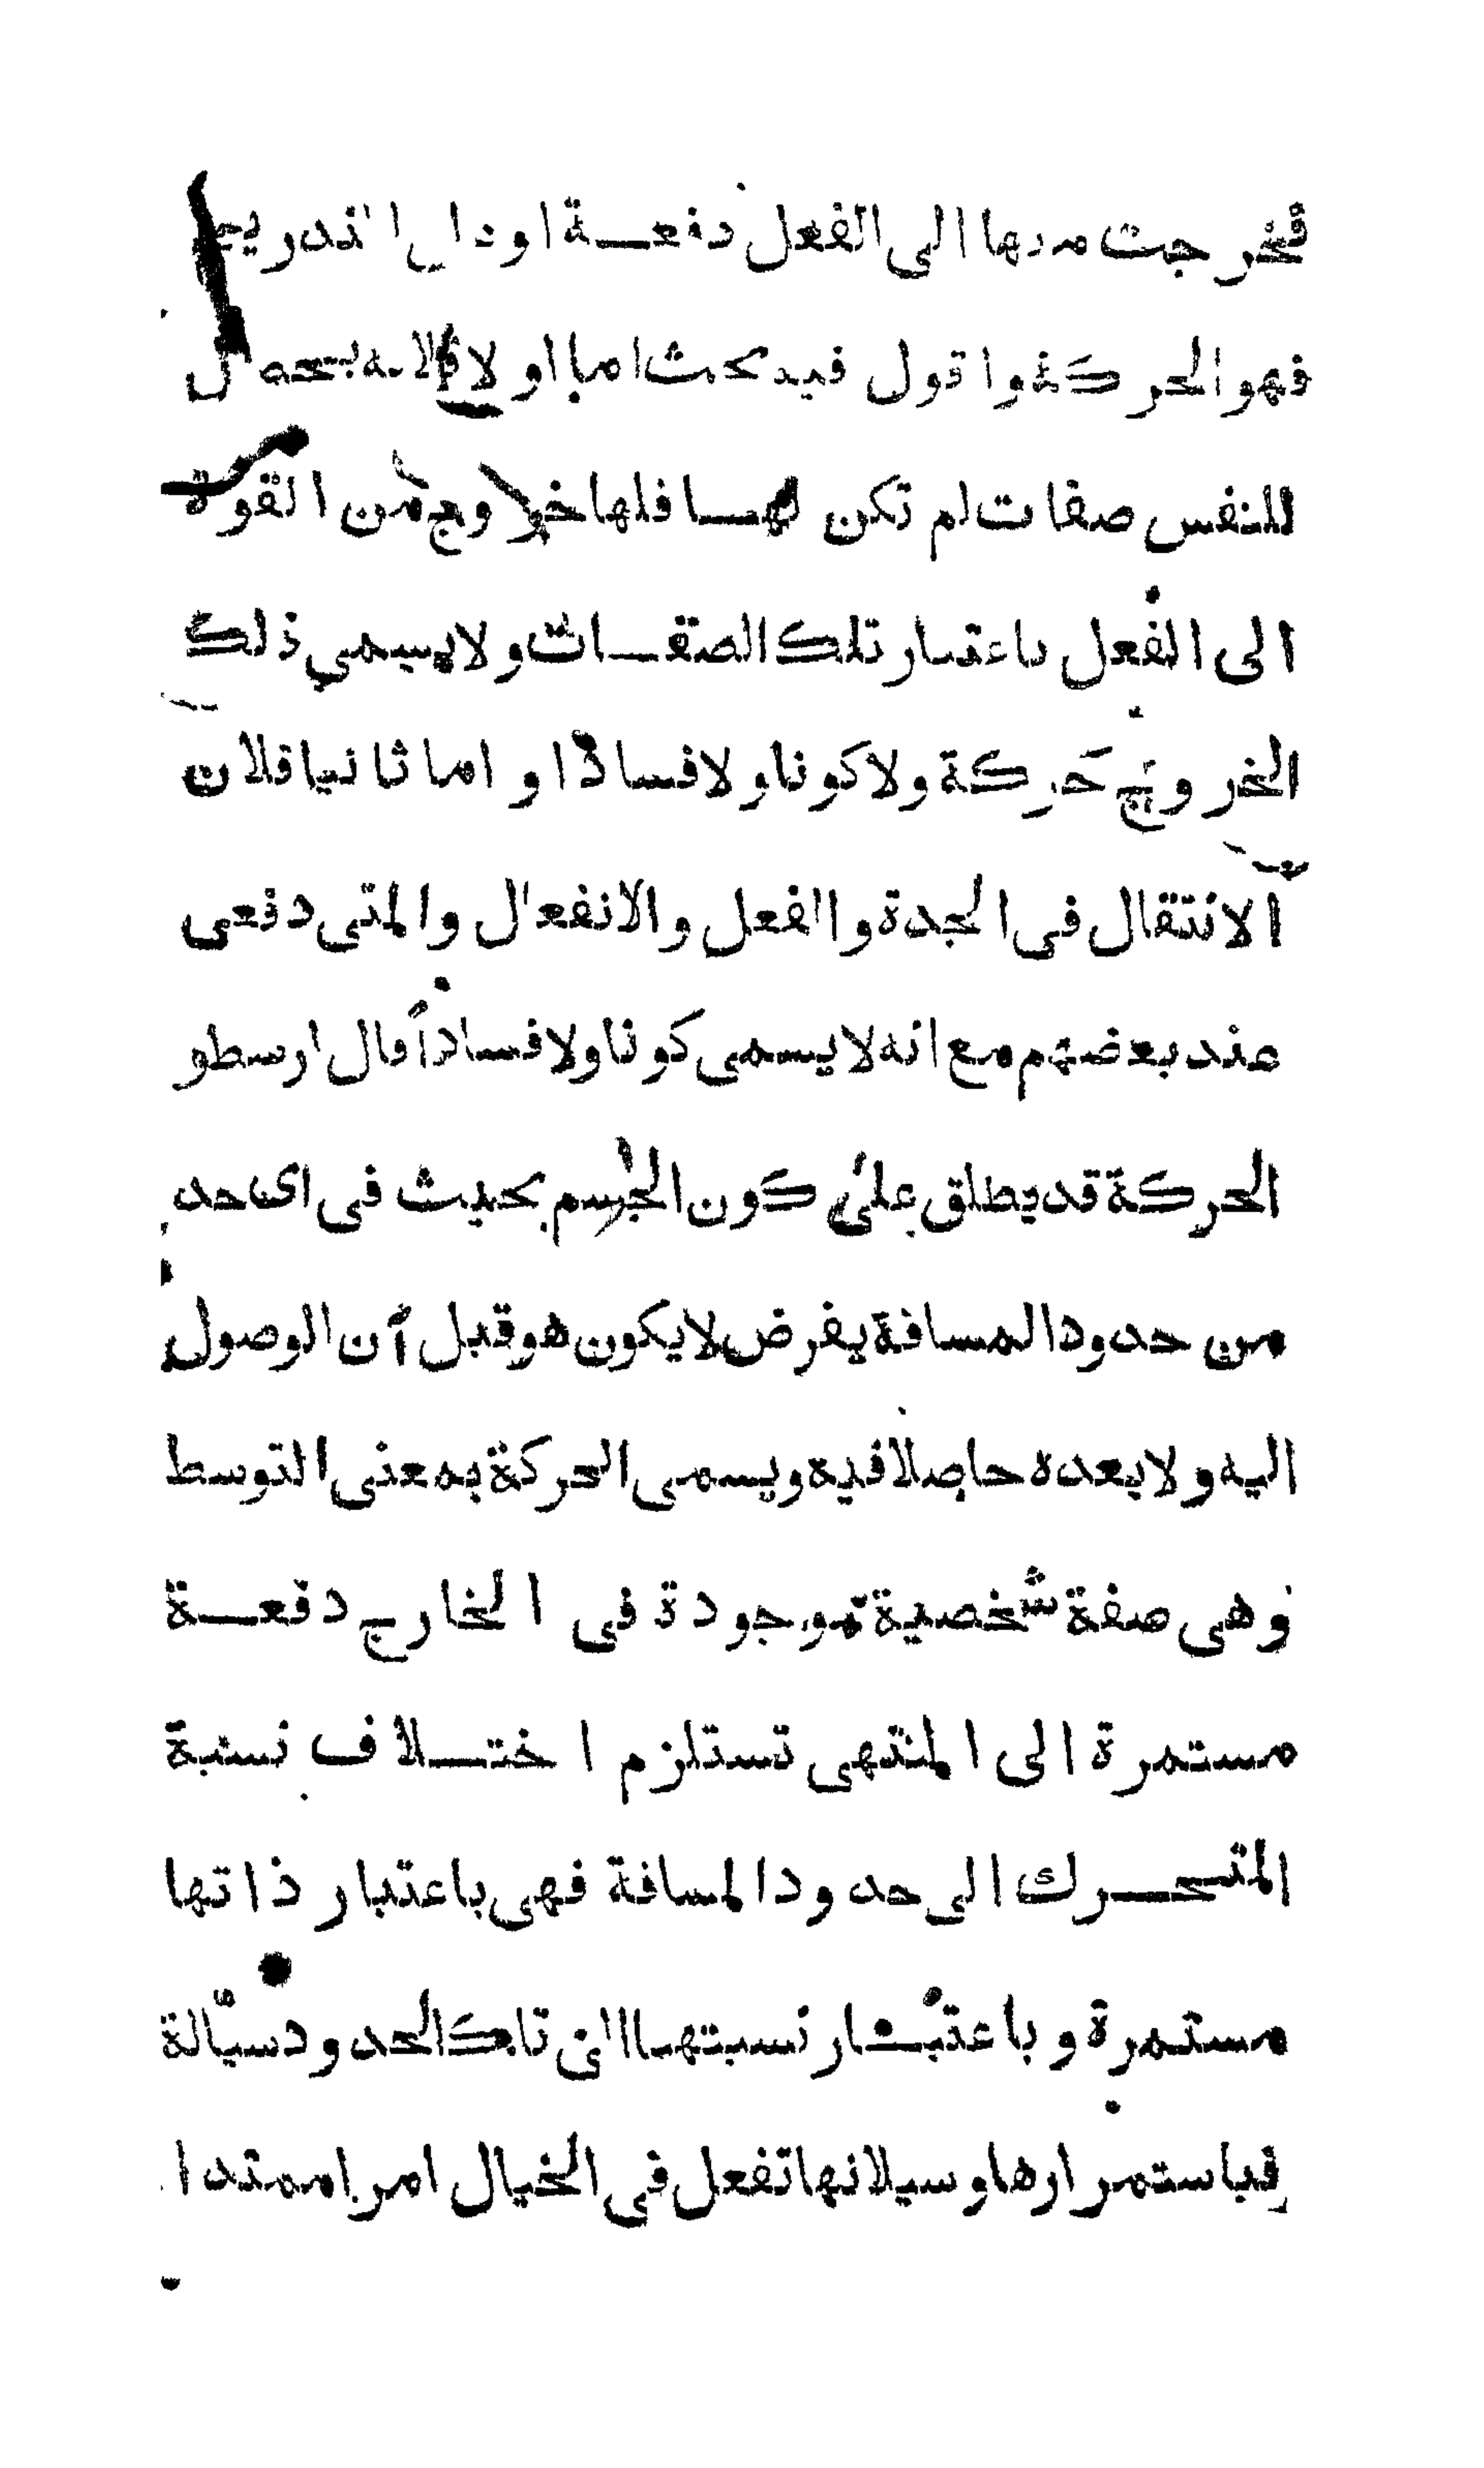 فخرجت منها الى الفعل دفعة او تدريجا
فهو الحركة واقول فيه بحث اما اولا فلانه يحصل
للنفس صفات لم تكن لها فلها خروج من القوة
الى الفعل باعتبار تلك الصفات ولا يسمى ذلك
الخروج حركة ولا كونا ولا فسادا واما ثانيا فلان
الانتقال فى الجدة والفعل والانفعال والمتى دفعى
عند بعضهم مع انه لا يسمى كونا ولا فسادا قال ارسطو
الحركة قد يطلق على كون الجسم بحيث فى اى حد
من حدود المسافة يفرض لا يكون هو قبل آن الوصول
اليه ولا بعده حاصلا فيه ويسمى الحركة بمعنى التوسط
وهى صفة شخصية موجودة فى الخارج دفعة
مستمرة الى المنتهى تستلزم اختلاف نسبة
المتحرك الى حدود المسافة فهى باعتبار ذاتها
مستمرة وباعتبار نسبتها الى تلك الحدود سيالة
فباستمرارها وسيلانها تفعل فى الخيال امرا ممتدا